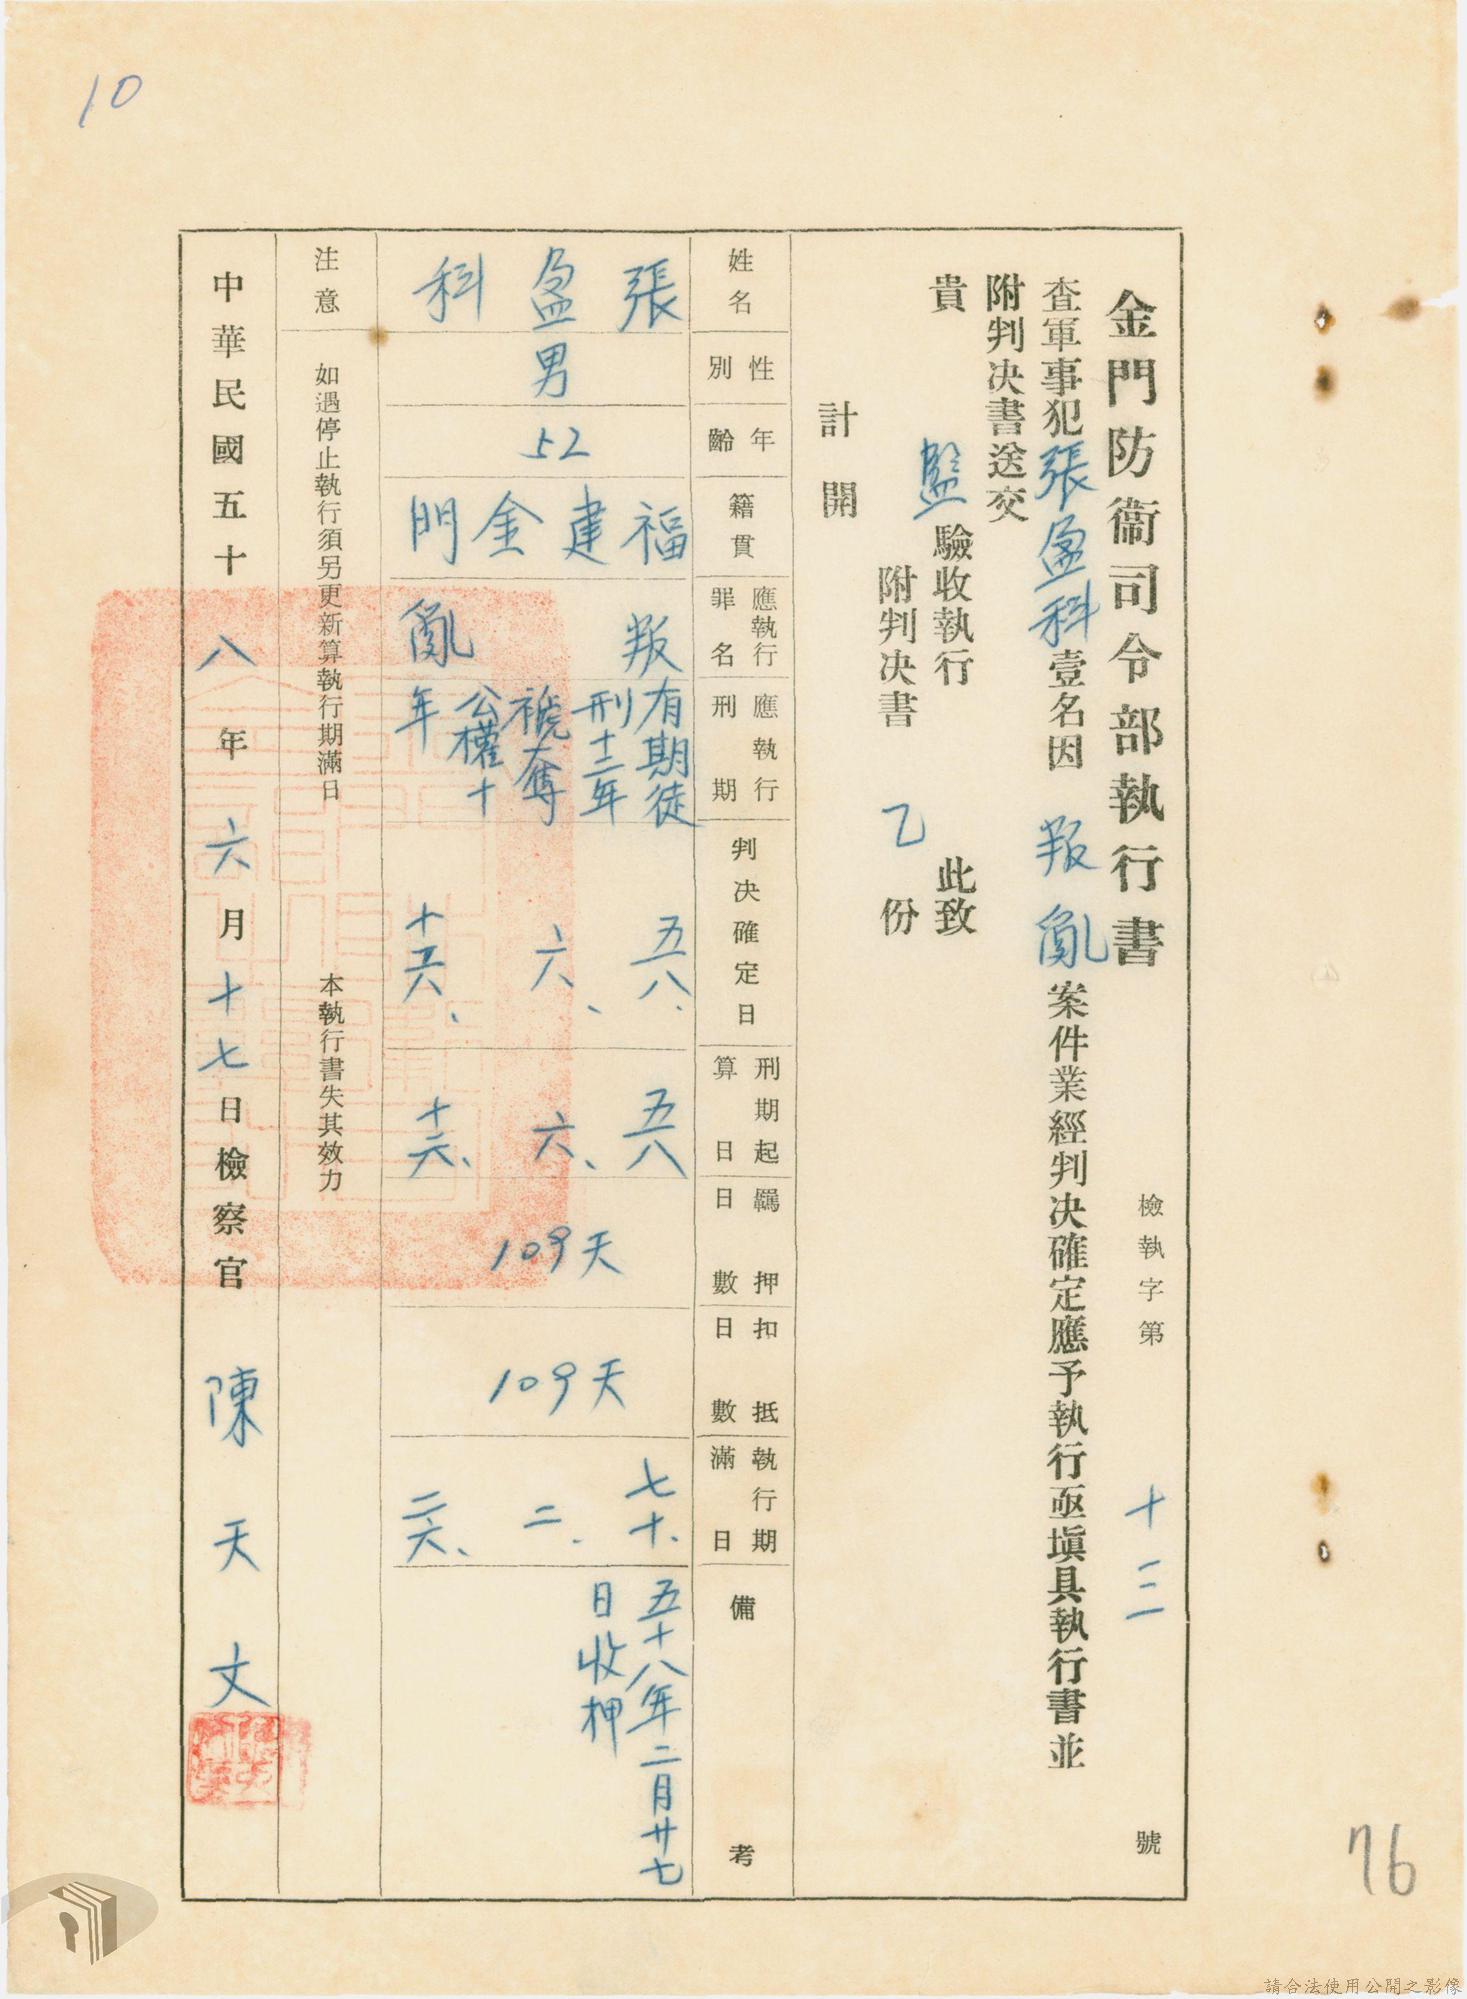 10
金門防衞司令部執行書
檢執字第十三號
查軍事犯張盈科壹名因叛亂案件業經判决確定應予執行亟塡具執行書並
附判决書送交
貴監驗收執行 此致
附判决書 乙 份
計開
姓名 張盈科
性別 男
年齡 52
籍貫 福建金門
應執行罪名 叛亂
應執行刑期 有期徒刑十二年褫奪公權十年
判决確定日 五八、六、十六、
刑期起算日 五八、六、十六、
羈押日數 109天
扣抵日數 109天
執行期滿日 七十、二、二六、
備考 五十八年二月廿七日收押
注意 如遇停止執行須另更新算執行期滿日 本執行書失其效力
中華民國五十八年六月十七日檢察官 陳天文
76
請合法使用公開之影像